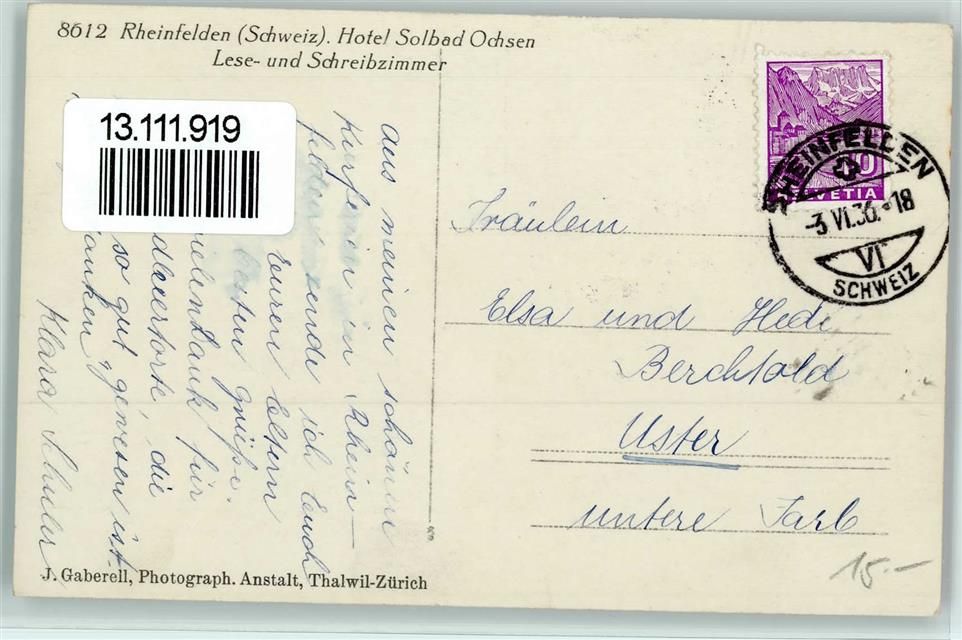 8612 Rheinfelden (Schweiz). Hotel Solbad Ochsen
Lese- und Schreibzimmer
13.111.919
HELVETIA
RHEINFELDEN
-3.VI.36.-18
VI
SCHWEIZ
Aus meinen schönen
Kurferien in Rhein-
felden sende ich Euch
Euren Eltern
besten Grüße.
vielen Dank für
die
so gut gewesen ist.
Klara
Fräulein
Elsa und Hedi
Berchtold
Uster
untere Farb
J. Gaberell, Photograph. Anstalt, Thalwil-Zürich
15.-